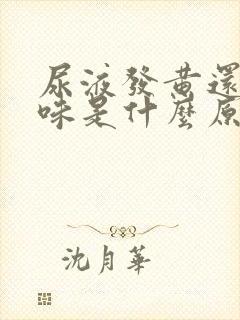 尿液發黄還
味是什麼原
沈月華